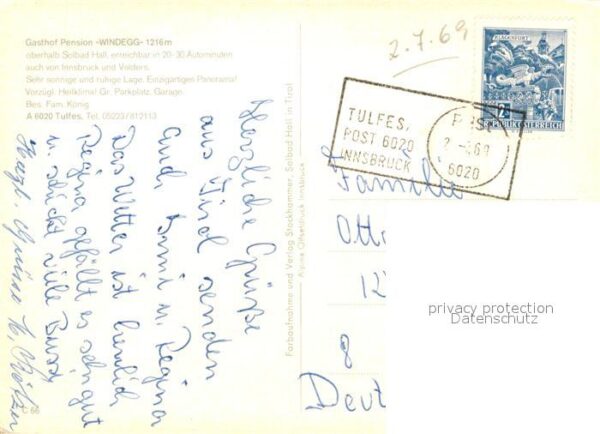 Gasthof Pension -WINDEGG- 1216 m
oberhalb Solbad Hall, erreichbar in 20-30 Autominuten
auch von Innsbruck und Volders.
Sehr sonnige und ruhige Lage. Einzigartiges Panorama!
Vorzügl. Heilklima! Gr. Parkplatz. Garage.
Bes. Fam. König
A 6020 Tulfes, Tel. 05223/812113
Herzliche Grüße
aus Tirol senden
Euch u. Regina
Das Wetter ist herrlich
Regina gefällt es sehr gut
u. schickt viele Bussi
Herzl. Grüsse
C 66
Farbaufnahme und Verlag Stockhammer, Solbad Hall in Tirol
Alpine Offsetdruck Innsbruck
2.7.69
KLAGENFURT
REPUBLIK ÖSTERREICH
TULFES,
POST 6020
INNSBRUCK
6020
Familie
Ott
12
8
Deut
privacy protection
Datenschutz